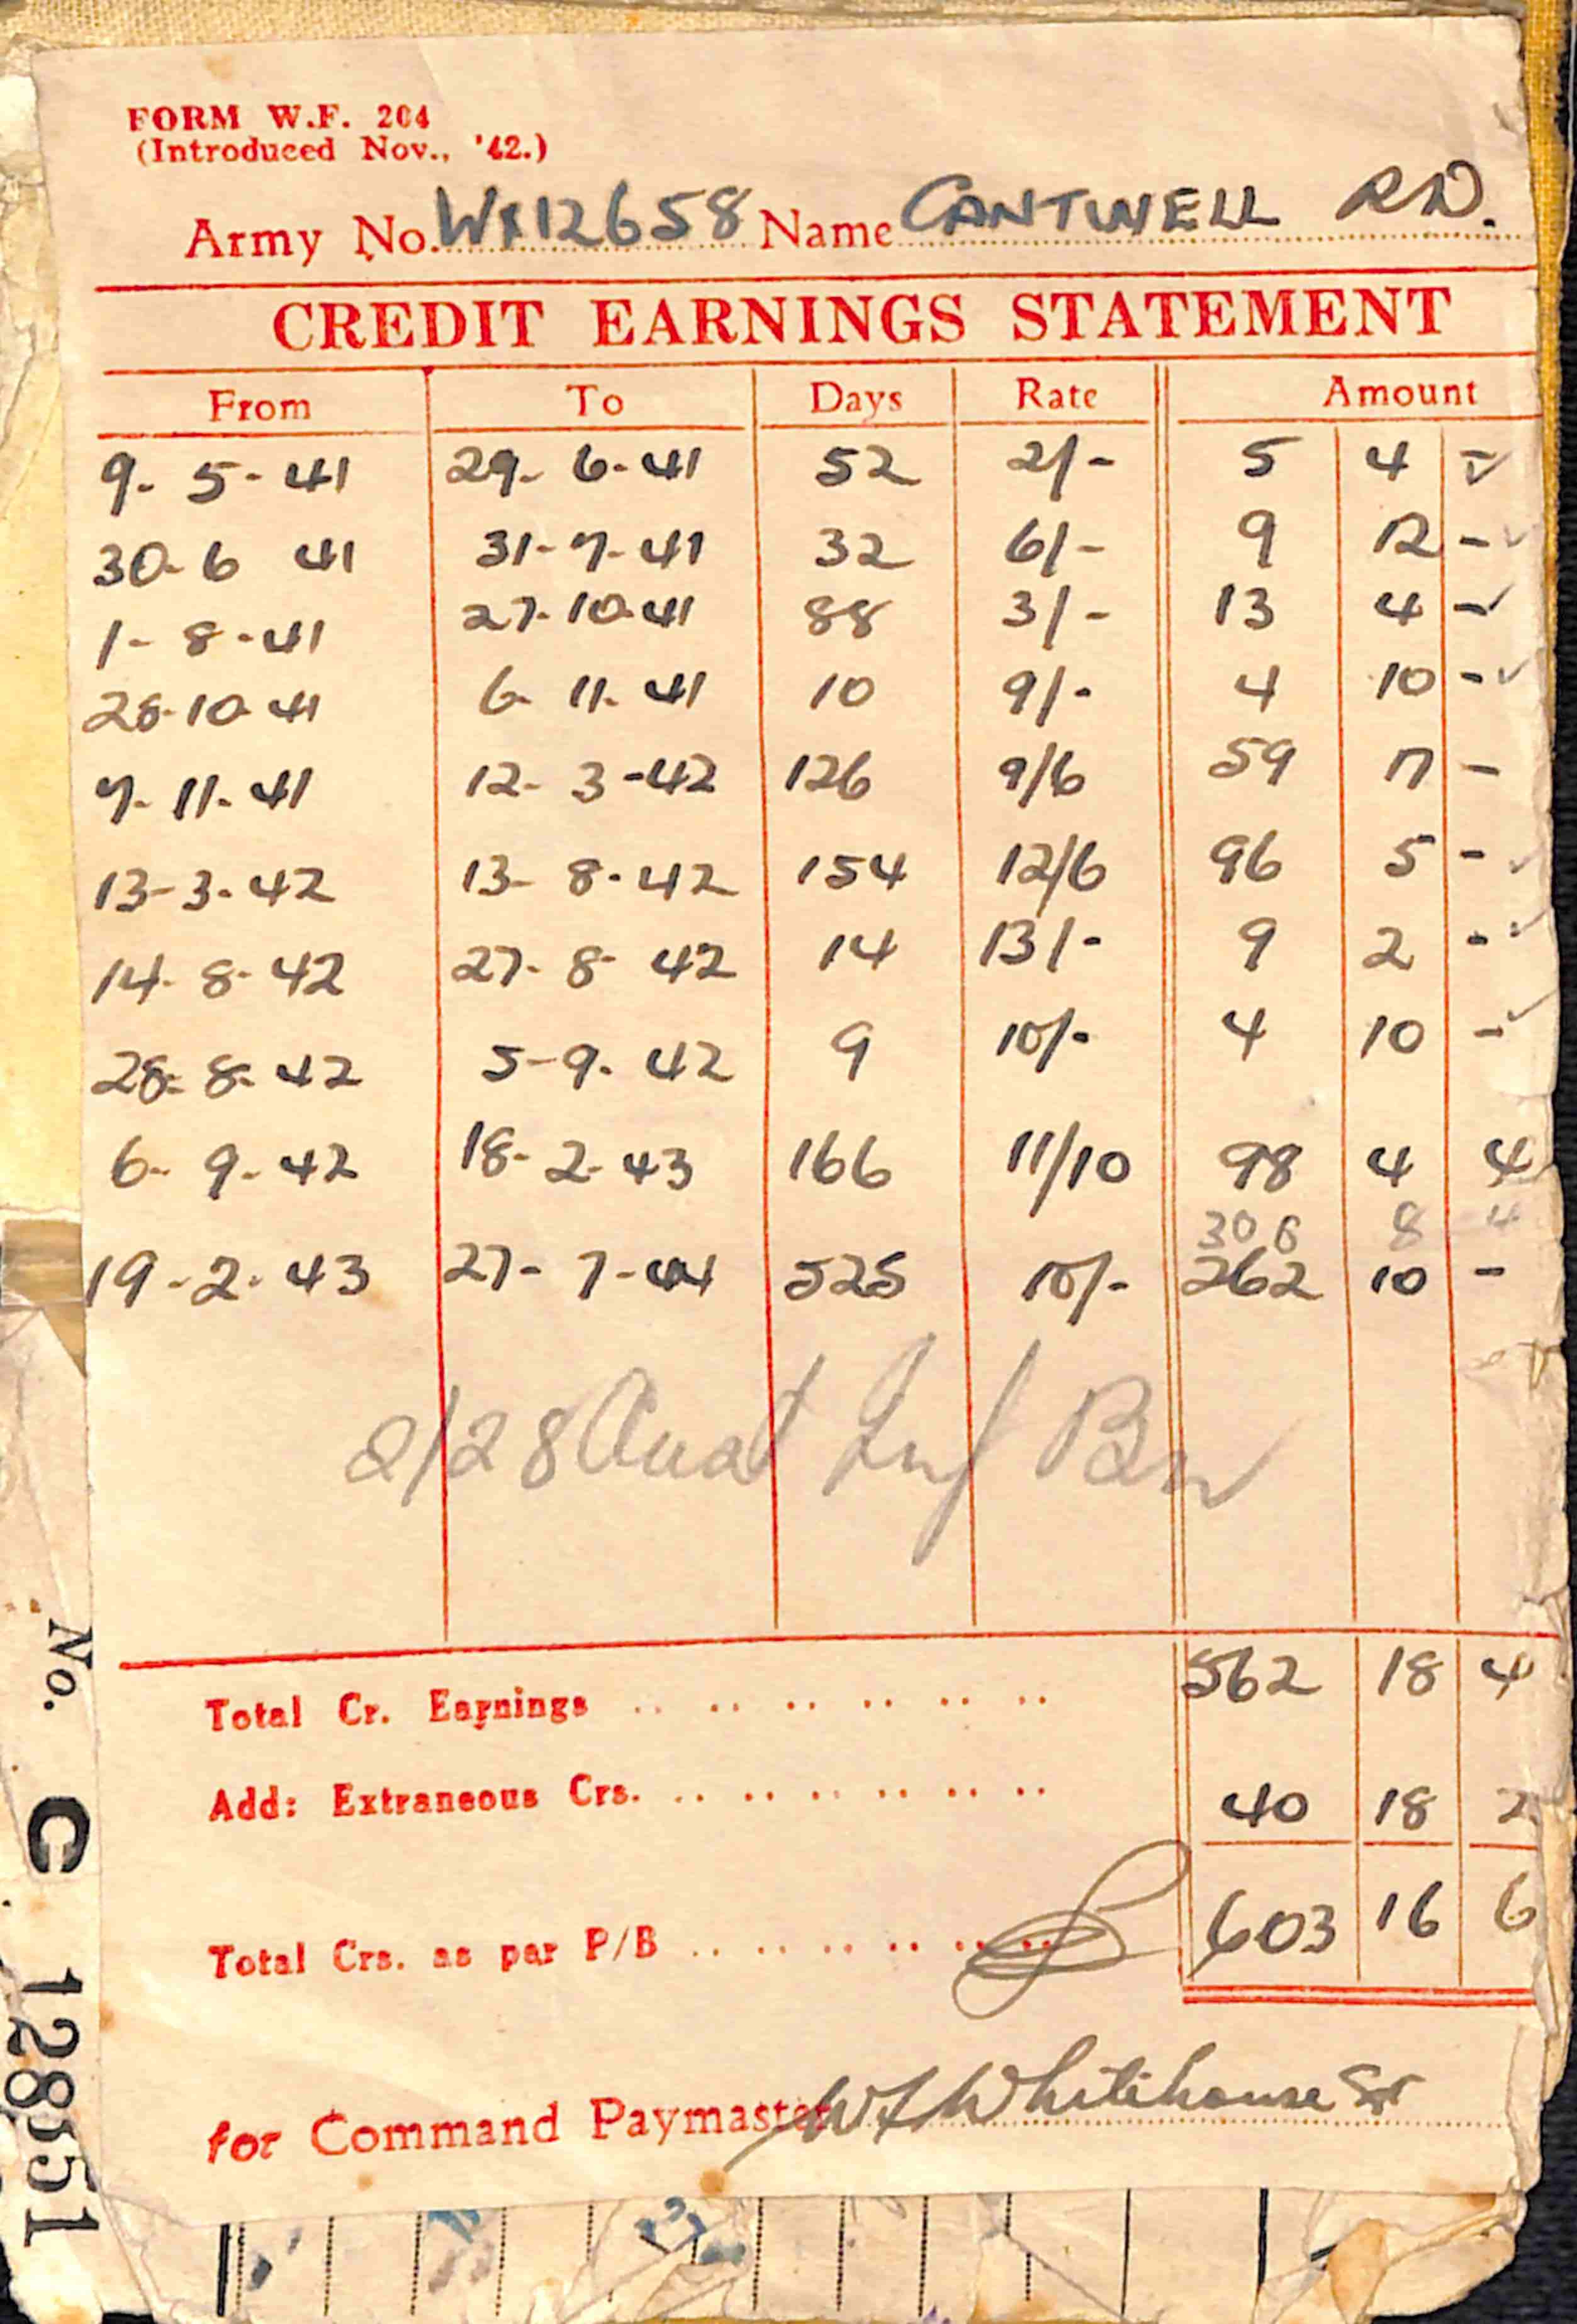 FORM W.F. 204
(Introduced Nov., '42.)
Army No. WX12658 Name CANTWELL RD.
CREDIT EARNINGS STATEMENT
From To Days Rate Amount
9-5-41 29-6-41 52 2/- 5 4 -
30-6 41 31-7-41 32 6/- 9 12 -
1-8-41 27-10-41 88 3/- 13 4 -
28-10-41 6-11-41 10 9/- 4 10 -
7-11-41 12-3-42 126 9/6 59 17 -
13-3-42 13-8-42 154 12/6 96 5 -
14-8-42 27-8-42 14 13/- 9 2 -
28-8-42 5-9-42 9 10/- 4 10 -
6-9-42 18-2-43 166 11/10 98 4 4
300 8 4
19-2-43 27-7-44 525 10/- 262 10 -
2/28 Aust Inf Bn
Total Cr. Earnings .. .. .. .. .. .. 562 18 4
Add: Extraneous Crs. .. .. .. .. .. .. 40 18 2
Total Crs. as per P/B .. .. .. .. .. 603 16 6
for Command Paymaster W Whitehouse Sgt
No. C 128551